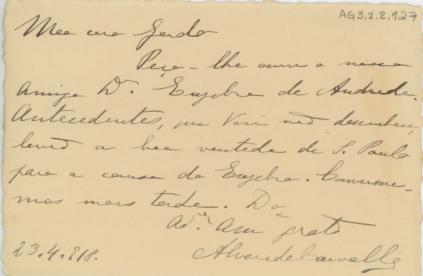 AG3.2.2.127
Meu caro Gerdo
Peço-lhe ouvir o nosso
amigo Dr. Euzebio de Andrade.
Antecedentes, que Você não
levará a boa vontade de S. Paulo
para a causa do Euzebio. Conversare-
mos mais tarde. Do
Adr. Am grato
Alvaro de Carvalho
23.4.918.